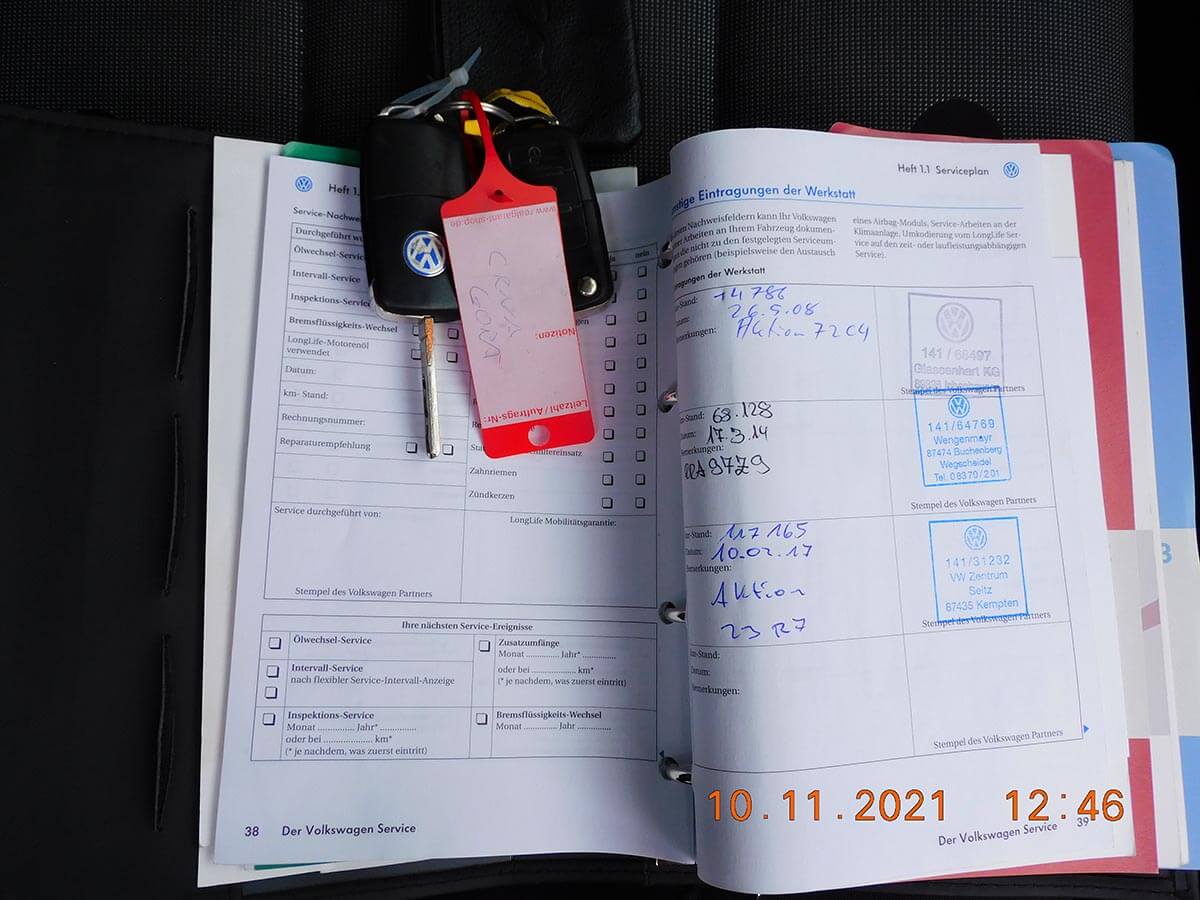 Heft 1.
Service-Nachwei
Durchgeführt wu
Ölwechsel-Servic
Intervall-Service
Inspektions-Service
Bremsflüssigkeits-Wechsel
LongLife-Motorenöl
verwendet
Datum:
km- Stand:
Rechnungsnummer:
Reparaturempfehlung
nein
Zahnriemen
Zündkerzen
Service durchgeführt von:
LongLife Mobilitätsgarantie:
Stempel des Volkswagen Partners
Ihre nächsten Service-Ereignisse
Ölwechsel-Service
Intervall-Service
nach flexibler Service-Intervall-Anzeige
Inspektions-Service
Monat ............... Jahr* ...............
oder bei ..................... km*
(* je nachdem, was zuerst eintritt)
Zusatzumfänge
Monat ............. Jahr* .............
oder bei .................. km*
(* je nachdem, was zuerst eintritt)
Bremsflüssigkeits-Wechsel
Monat ............. Jahr .............
38 Der Volkswagen Service
www.realgarant-shop.de
CRNA
GORA
Notizen:
Leitzahl / Auftrags-Nr:
Heft 1.1 Serviceplan
nstige Eintragungen der Werkstatt
esen Nachweisfeldern kann Ihr Volkswagen
er Arbeiten an Ihrem Fahrzeug dokumen-
die nicht zu den festgelegten Serviceum-
gen gehören (beispielsweise den Austausch
eines Airbag-Moduls, Service-Arbeiten an der
Klimaanlage, Umkodierung vom LongLife Ser-
vice auf den zeit- oder laufleistungsabhängigen
Service).
tragungen der Werkstatt
m-Stand: 14 786
Datum: 26.5.08
emerkungen: Aktion 72C4
141 / 68497
Glassenhart KG
Stempel des Volkswagen Partners
m-Stand: 68.128
Datum: 17.3.14
Bemerkungen:
141/64769
Wengenmayr
87474 Buchenberg
Wegscheidel
Tel. 08370/201
Stempel des Volkswagen Partners
km-Stand: 117 165
Datum: 10.02.17
Bemerkungen:
Aktion
23 R7
141/31232
VW Zentrum
Seitz
87435 Kempten
Stempel des Volkswagen Partners
km-Stand:
Datum:
Bemerkungen:
Stempel des Volkswagen Partners
Der Volkswagen Service 39
3
10.11.2021 12:46